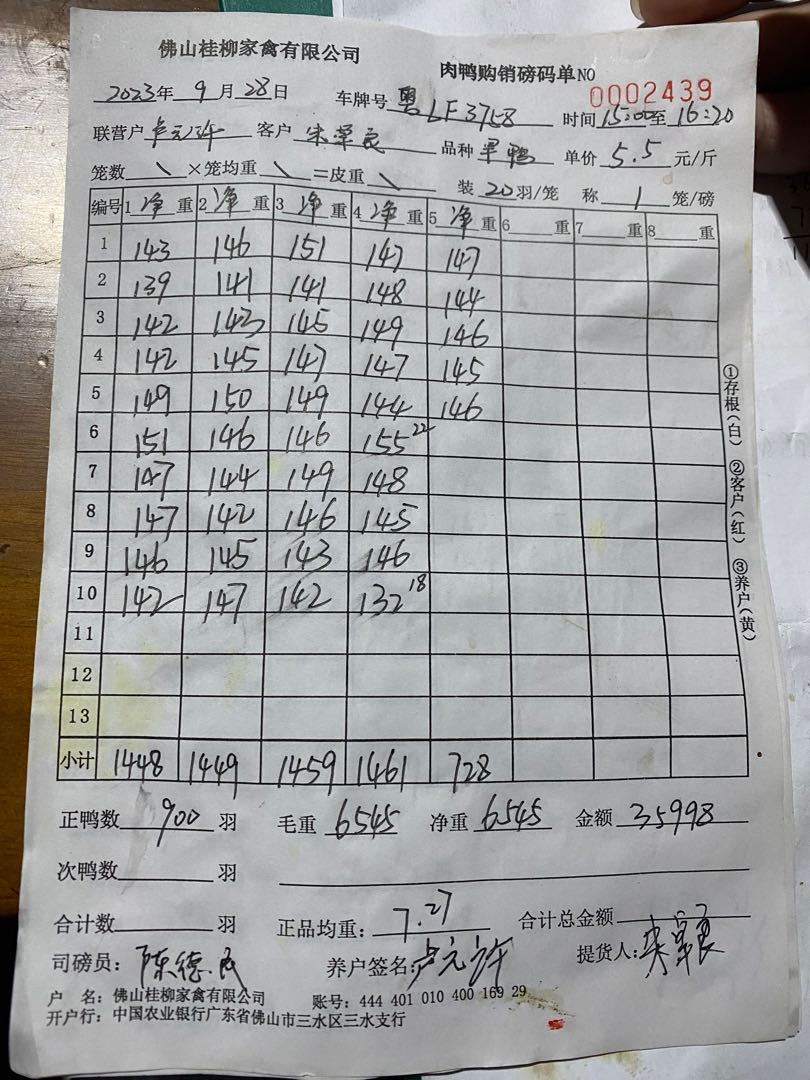 佛山桂柳家禽有限公司
肉鸭购销磅码单NO 0002439
2023年 9月 28日 车牌号 粤LF3758 时间15:00至16:20
联营户 卢元许 客户 品种 单价 5.5 元/斤
笼数 \ ×笼均重 \ =皮重 \ 装 20羽/笼 称 1 笼/磅
编号 1 净 重 2 净 重 3 净 重 4 净 重 5 净 重 6 重 7 重 8 重
1 143 146 151 147 147
2 139 141 141 148 144
3 142 143 145 149 146
4 142 145 147 147 145
5 149 150 149 144 146
6 151 146 146 155 22
7 147 144 149 148
8 147 142 146 145
9 146 145 143 146
10 142 147 142 132 18
11
12
13
小计 1448 1449 1459 1461 728
①存根(白) ②客户(红) ③养户(黄)
正鸭数 900 羽 毛重 6545 净重 6545 金额 35998
次鸭数 羽
合计数 羽 正品均重: 7.27 合计总金额
司磅员: 陈德民 养户签名: 卢元许 提货人:
户 名: 佛山桂柳家禽有限公司 账号: 444 401 010 400 169 29
开户行: 中国农业银行广东省佛山市三水区三水支行